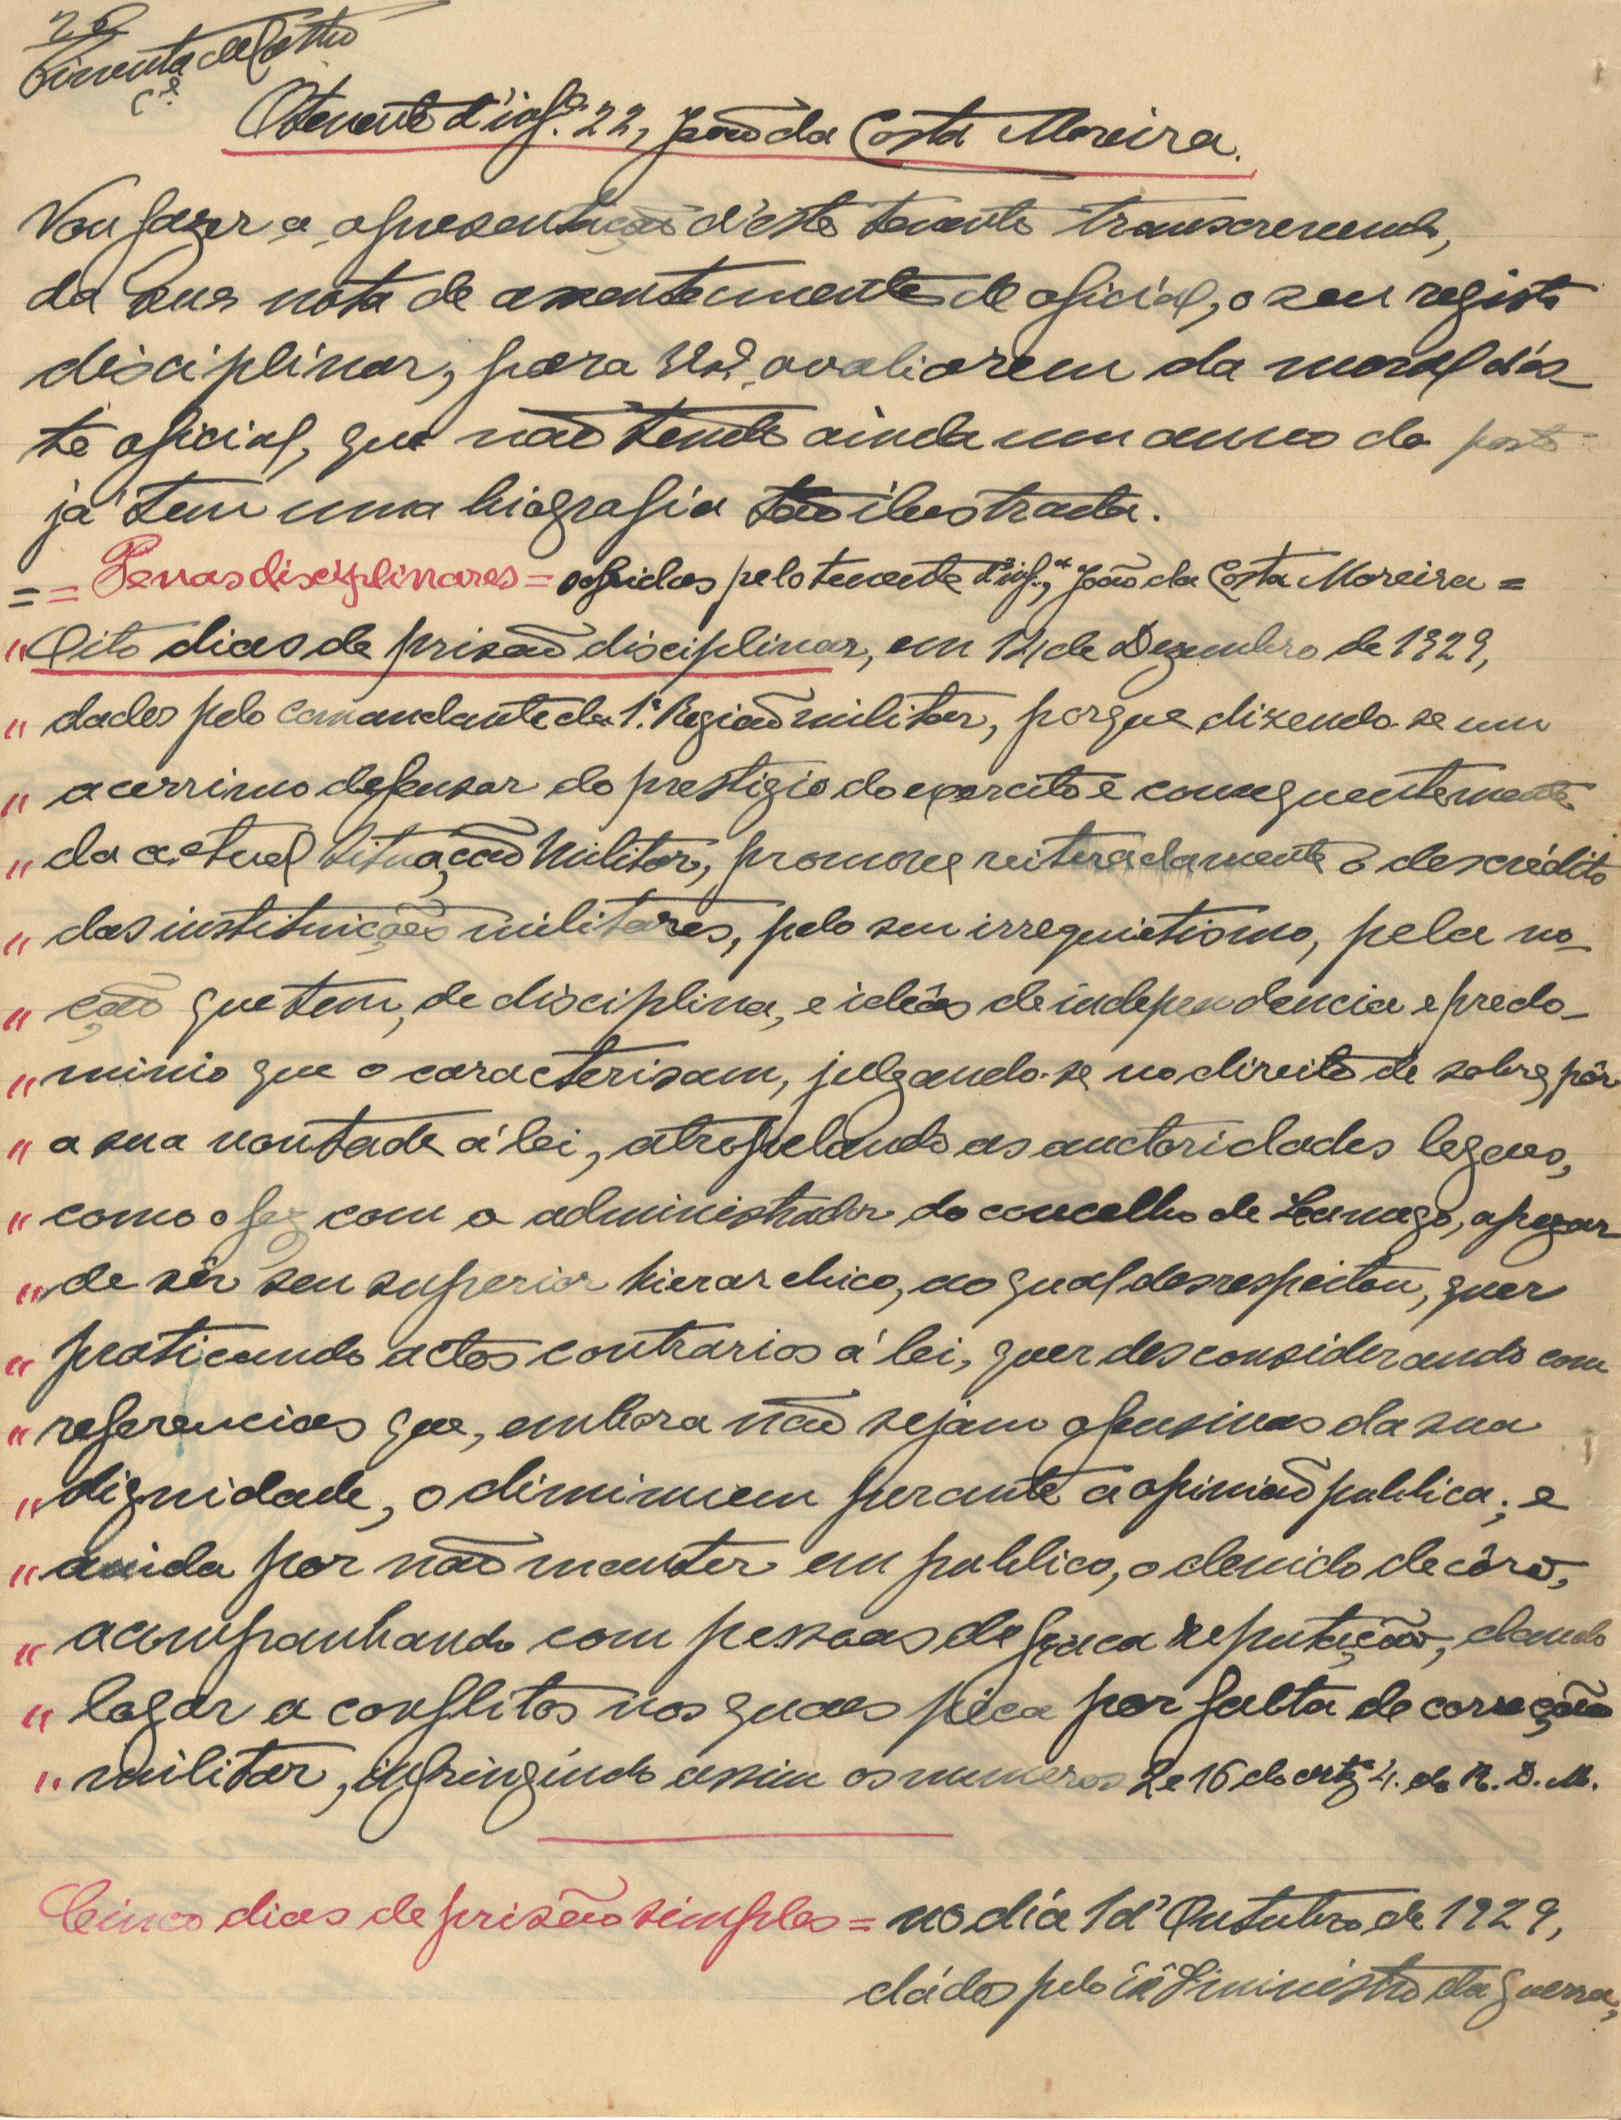 26
Pimenta de Castro
C.el
O tenente d'inf.ª 22, João da Costa Moreira.
Vou fazer a apresentação d'este tenente transcrevendo,
da sua nota de assentamentos de oficial, o seu registo
disciplinar, para avaliarem da moral dês-
te oficial, que não tendo ainda um anno do posto
já tem uma biografia tão ilustrada.
= = Penas disciplinares = sofridas pelo tenente d'inf.ª, João da Costa Moreira =
" Oito dias de prisão disciplinar, em 14 de Dezembro de 1929,
" dados pelo comandante da 1.ª Região militar, porque dizendo-se um
" acerrimo defensor do prestigio do exercito e consequentemente
" da actual situação Militar, promove reiteradamente o descrédito
" das instituições militares, pelo seu irrequietismo, pela no-
" ção que tem, de disciplina, e ideas de independencia e predo-
" minio que o caracterisam, julgando-se no direito de sobrepôr
" a sua vontade á lei, atropelando as auctoridades legaes,
" como o fez com o administrador do concelho de Lamego, apezar
" de sêr seu superior hierarchico, ao qual desrespeitou, quer
" praticando actos contrarios á lei, quer desconsiderando com
" referencias que, embora não sejam ofensivas da sua
" dignidade, o diminuem perante a opinião publica; e
" ainda por não manter em publico, o devido decôro,
" acompanhando com pessoas de fraca reputação, dando
" logar a conflitos nos quaes péca por falta de correção
" militar, infringindo assim os numeros 2 e 16 do artº 4. do R. D. M.
Cinco dias de prisão simples = no día 1 d'Outubro de 1929,
dádos pelo Ministro da guerra,